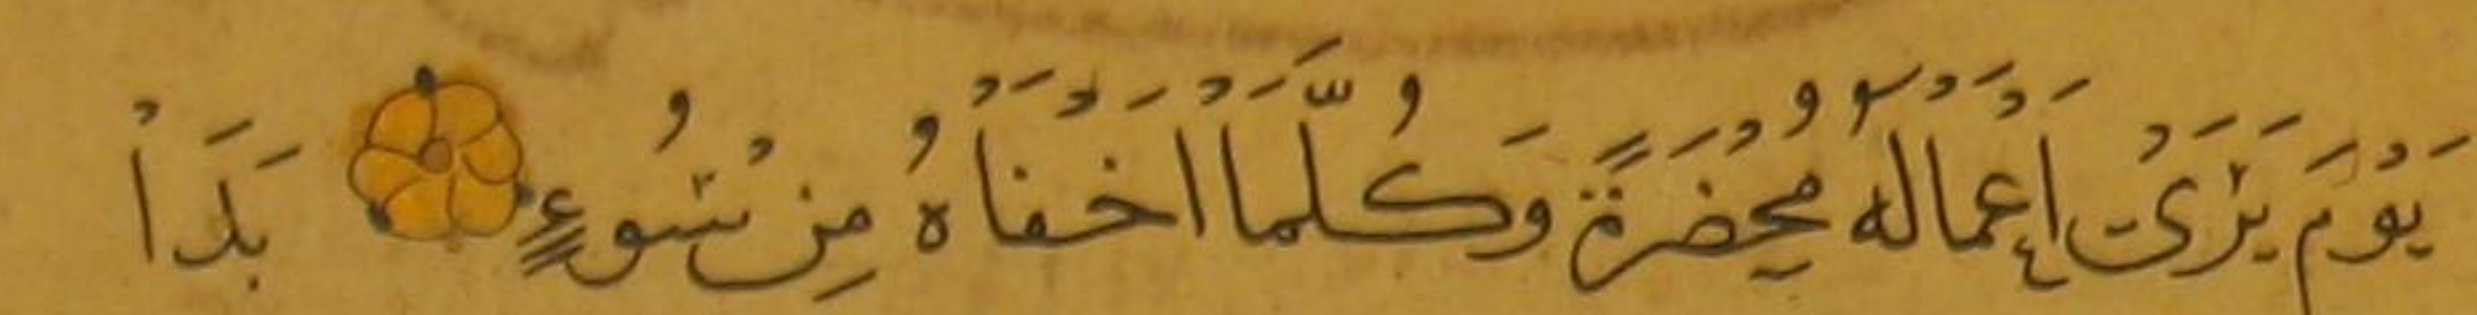 يَوْمَ يَرَىْ اَعْمَالَهُ مُحْضَرَةً وَكُلَّمَاْ اَخْفَاْهُ مِنْ سُوْءٍ بَدَاْ